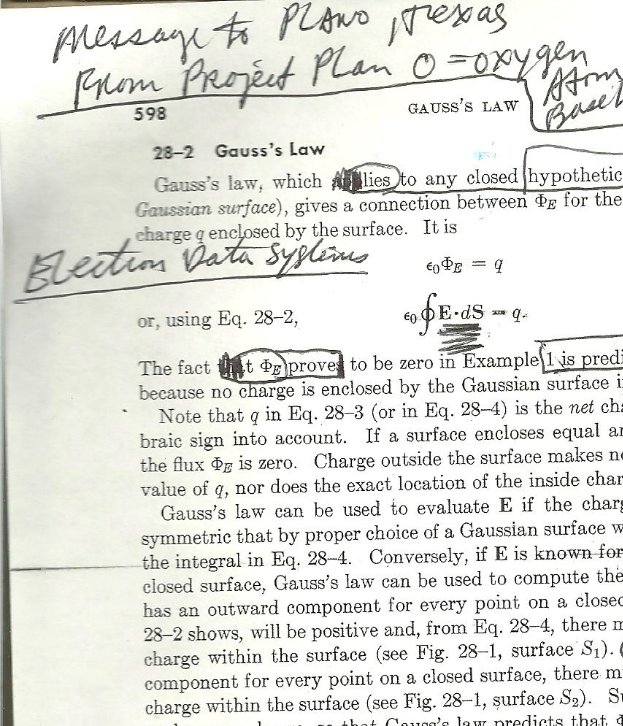 Message to PLANO, Texas
From Project Plan O = oxygen
Atom
Based
598
GAUSS'S LAW
28–2 Gauss's Law
Gauss's law, which lies to any closed hypothetic
Gaussian surface), gives a connection between Φ_E for the
charge q enclosed by the surface. It is
Election Data Systems
ε₀Φ_E = q
or, using Eq. 28–2,
ε₀∮E·dS = q.
The fact t Φ_E proves to be zero in Example 1 is predi
because no charge is enclosed by the Gaussian surface i
Note that q in Eq. 28–3 (or in Eq. 28–4) is the net cha
braic sign into account. If a surface encloses equal an
the flux Φ_E is zero. Charge outside the surface makes no
value of q, nor does the exact location of the inside char
Gauss's law can be used to evaluate E if the charg
symmetric that by proper choice of a Gaussian surface w
the integral in Eq. 28–4. Conversely, if E is known for
closed surface, Gauss's law can be used to compute the
has an outward component for every point on a closed
28–2 shows, will be positive and, from Eq. 28–4, there m
charge within the surface (see Fig. 28–1, surface S₁). (
component for every point on a closed surface, there m
charge within the surface (see Fig. 28–1, surface S₂). Su
that Gauss's law predicts that